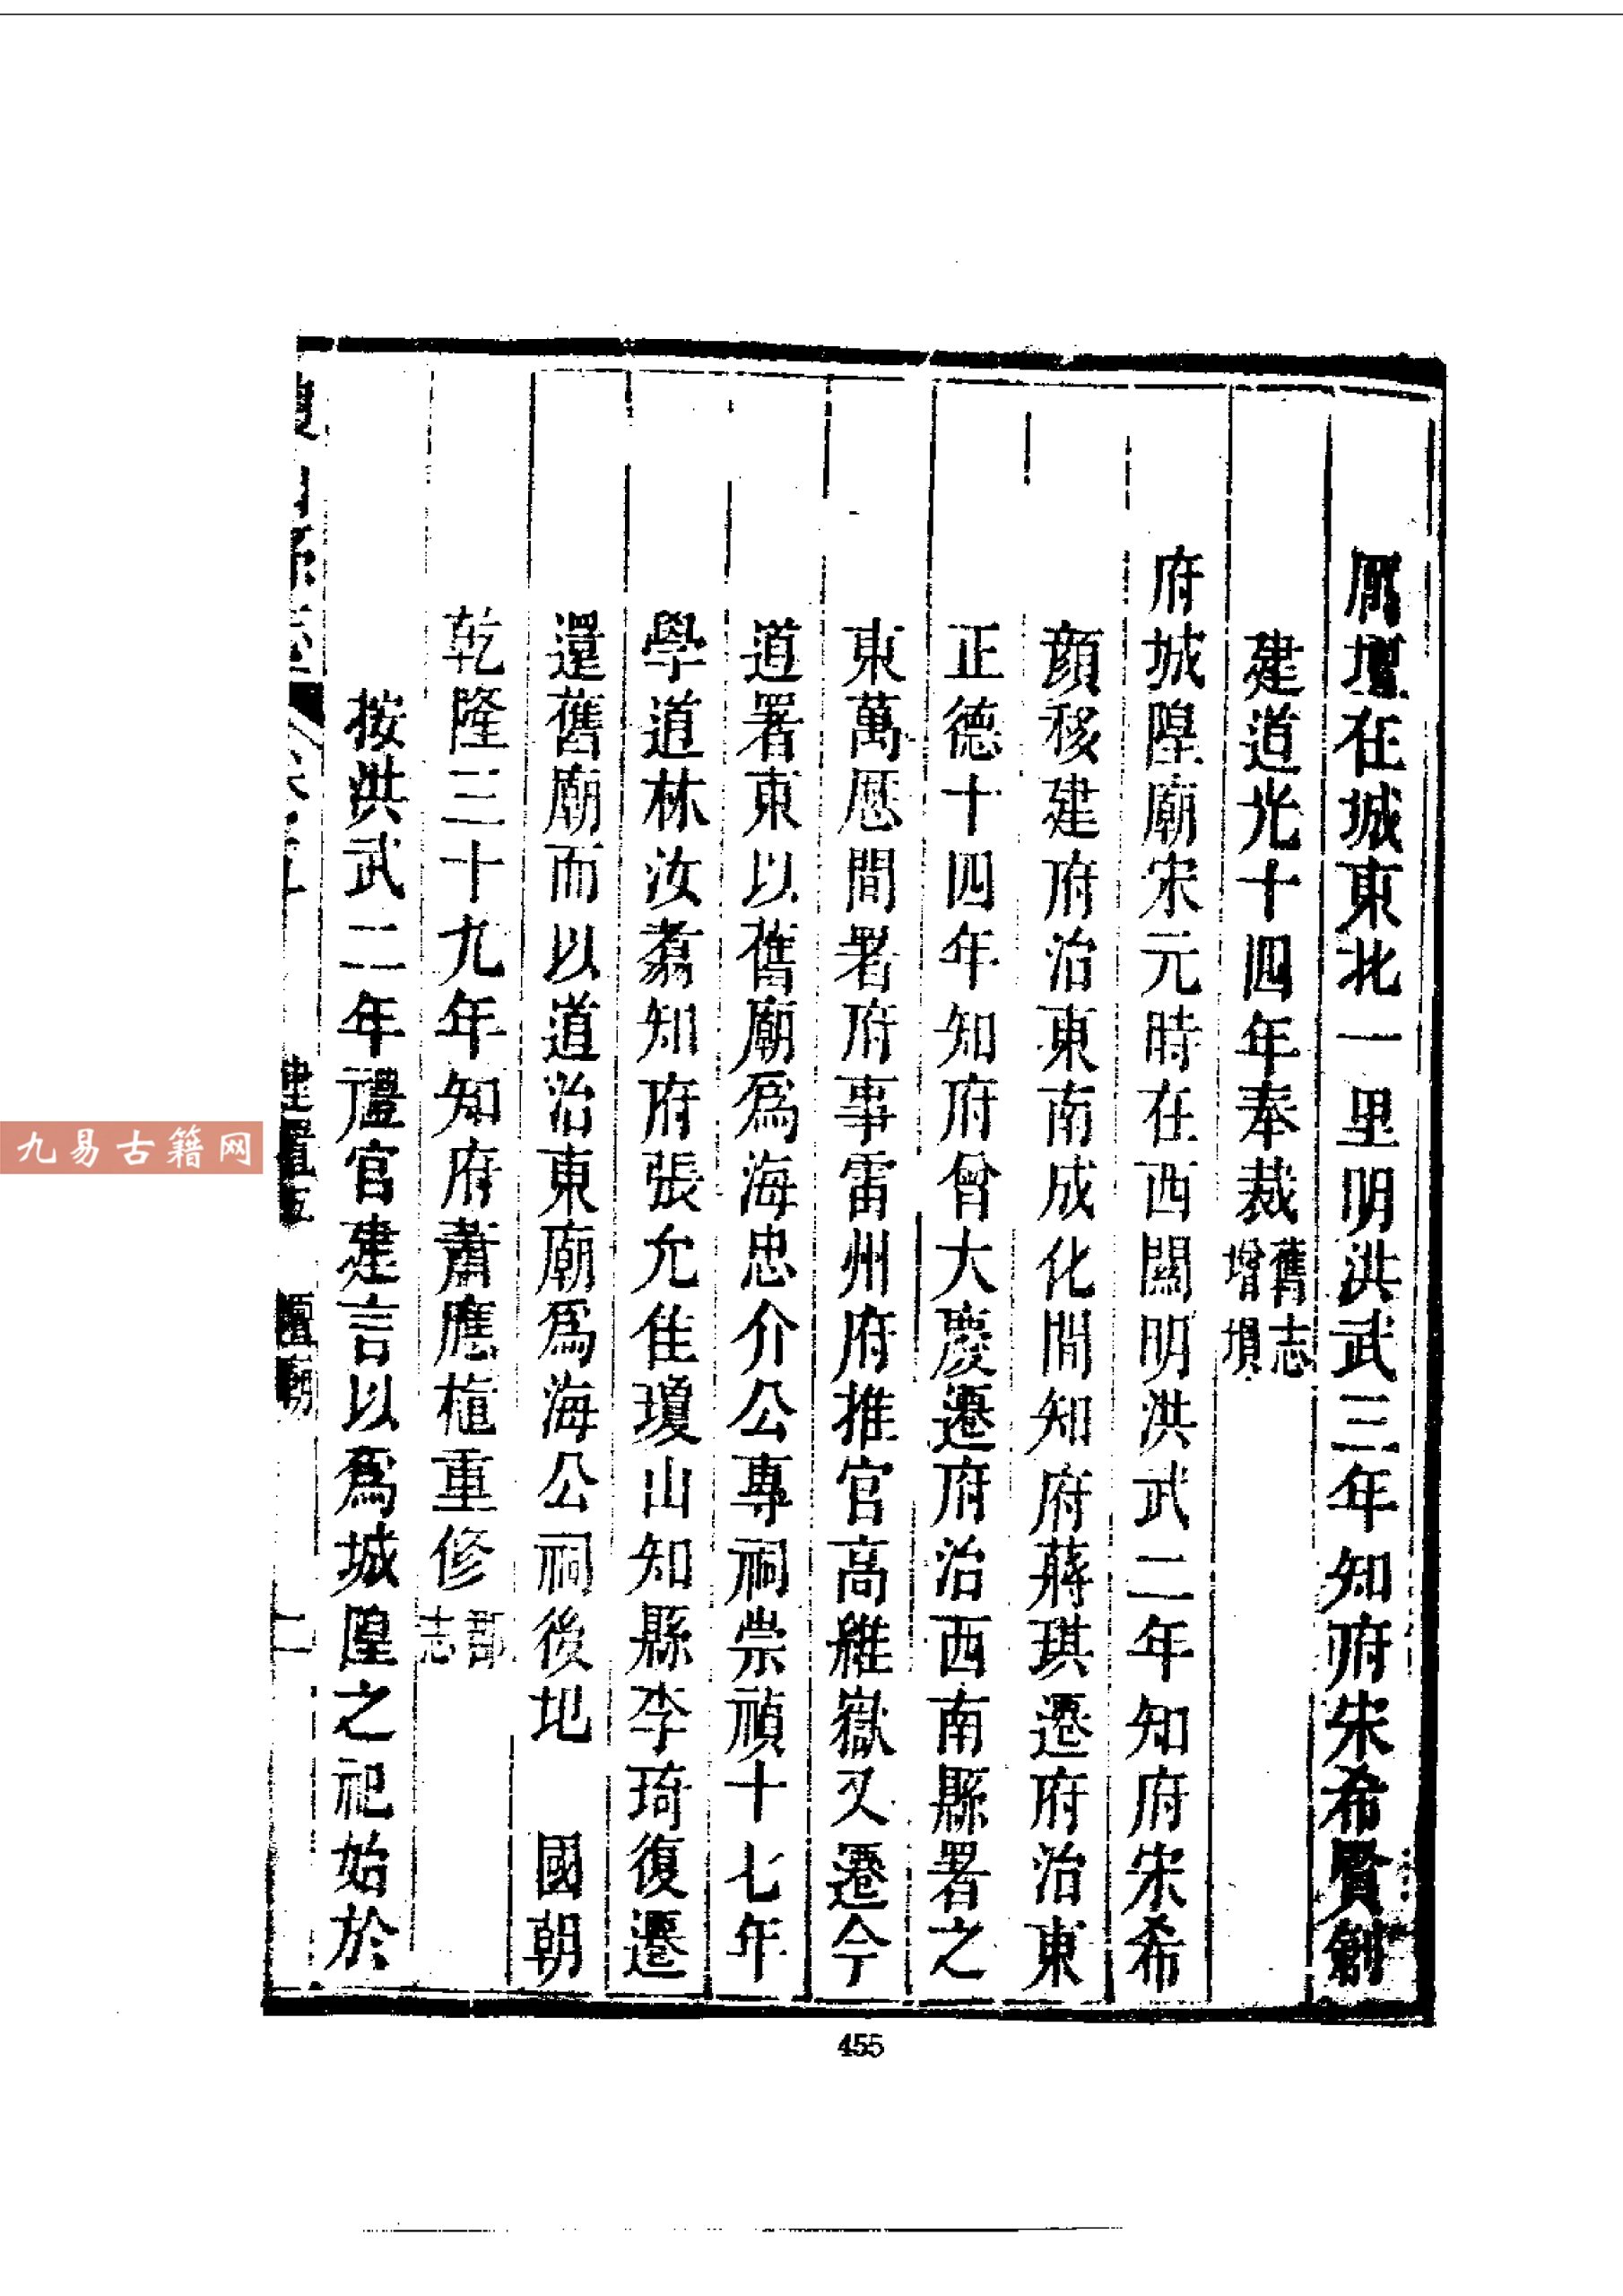 厲壇在城東北一里明洪武三年知府宋希賢創
建道光十四年奉裁舊志
增損
府城隍廟宋元時在西關明洪武二年知府宋希
顔移建府治東南成化間知府蔣琪遷府治東
正德十四年知府曾大慶遷府治西南縣署之
東萬厯間署府事雷州府推官高維嶽又遷今
道署東以舊廟爲海忠介公專祠崇禎十七年
學道林汝翥知府張允佳瓊山知縣李琦復遷
還舊廟而以道治東廟爲海公祠後圮 國朝
乾隆三十九年知府蕭應植重修郡
志
按洪武二年禮官建言以爲城隍之祀始於
建置五 壇廟
九易古籍网
455